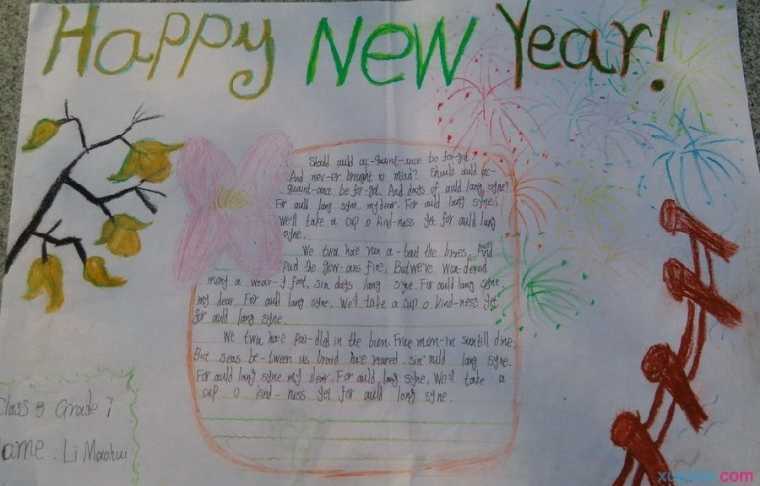 Happy New Year!
Should auld ac-quaint-ance be for-got
And nev-er brought to mind? Should auld ac-
quaint-ance be for-got. And days of auld lang syne?
For auld lang syne. my dear. For auld lang syne.
We'll take a cup o kind-ness yet for auld lang
syne.
We twa have run a-bout the braes, And
pu'd the gow-ans fine. But we've wan-dered
many a wear-y foot, sin days lang syne. For auld lang syne.
my dear. For auld lang syne. We'll take a cup o kind-ness yet
for auld lang syne.
We twa have pai-dled in the burn. Frae morn-in sun till dine.
But seas be-tween us braid have roared. sin auld lang syne.
For auld lang syne my dear. For auld lang syne. We'll take a
cup o kind-ness yet for auld lang syne.
Class 3 Grade 7
Name. Li
.com